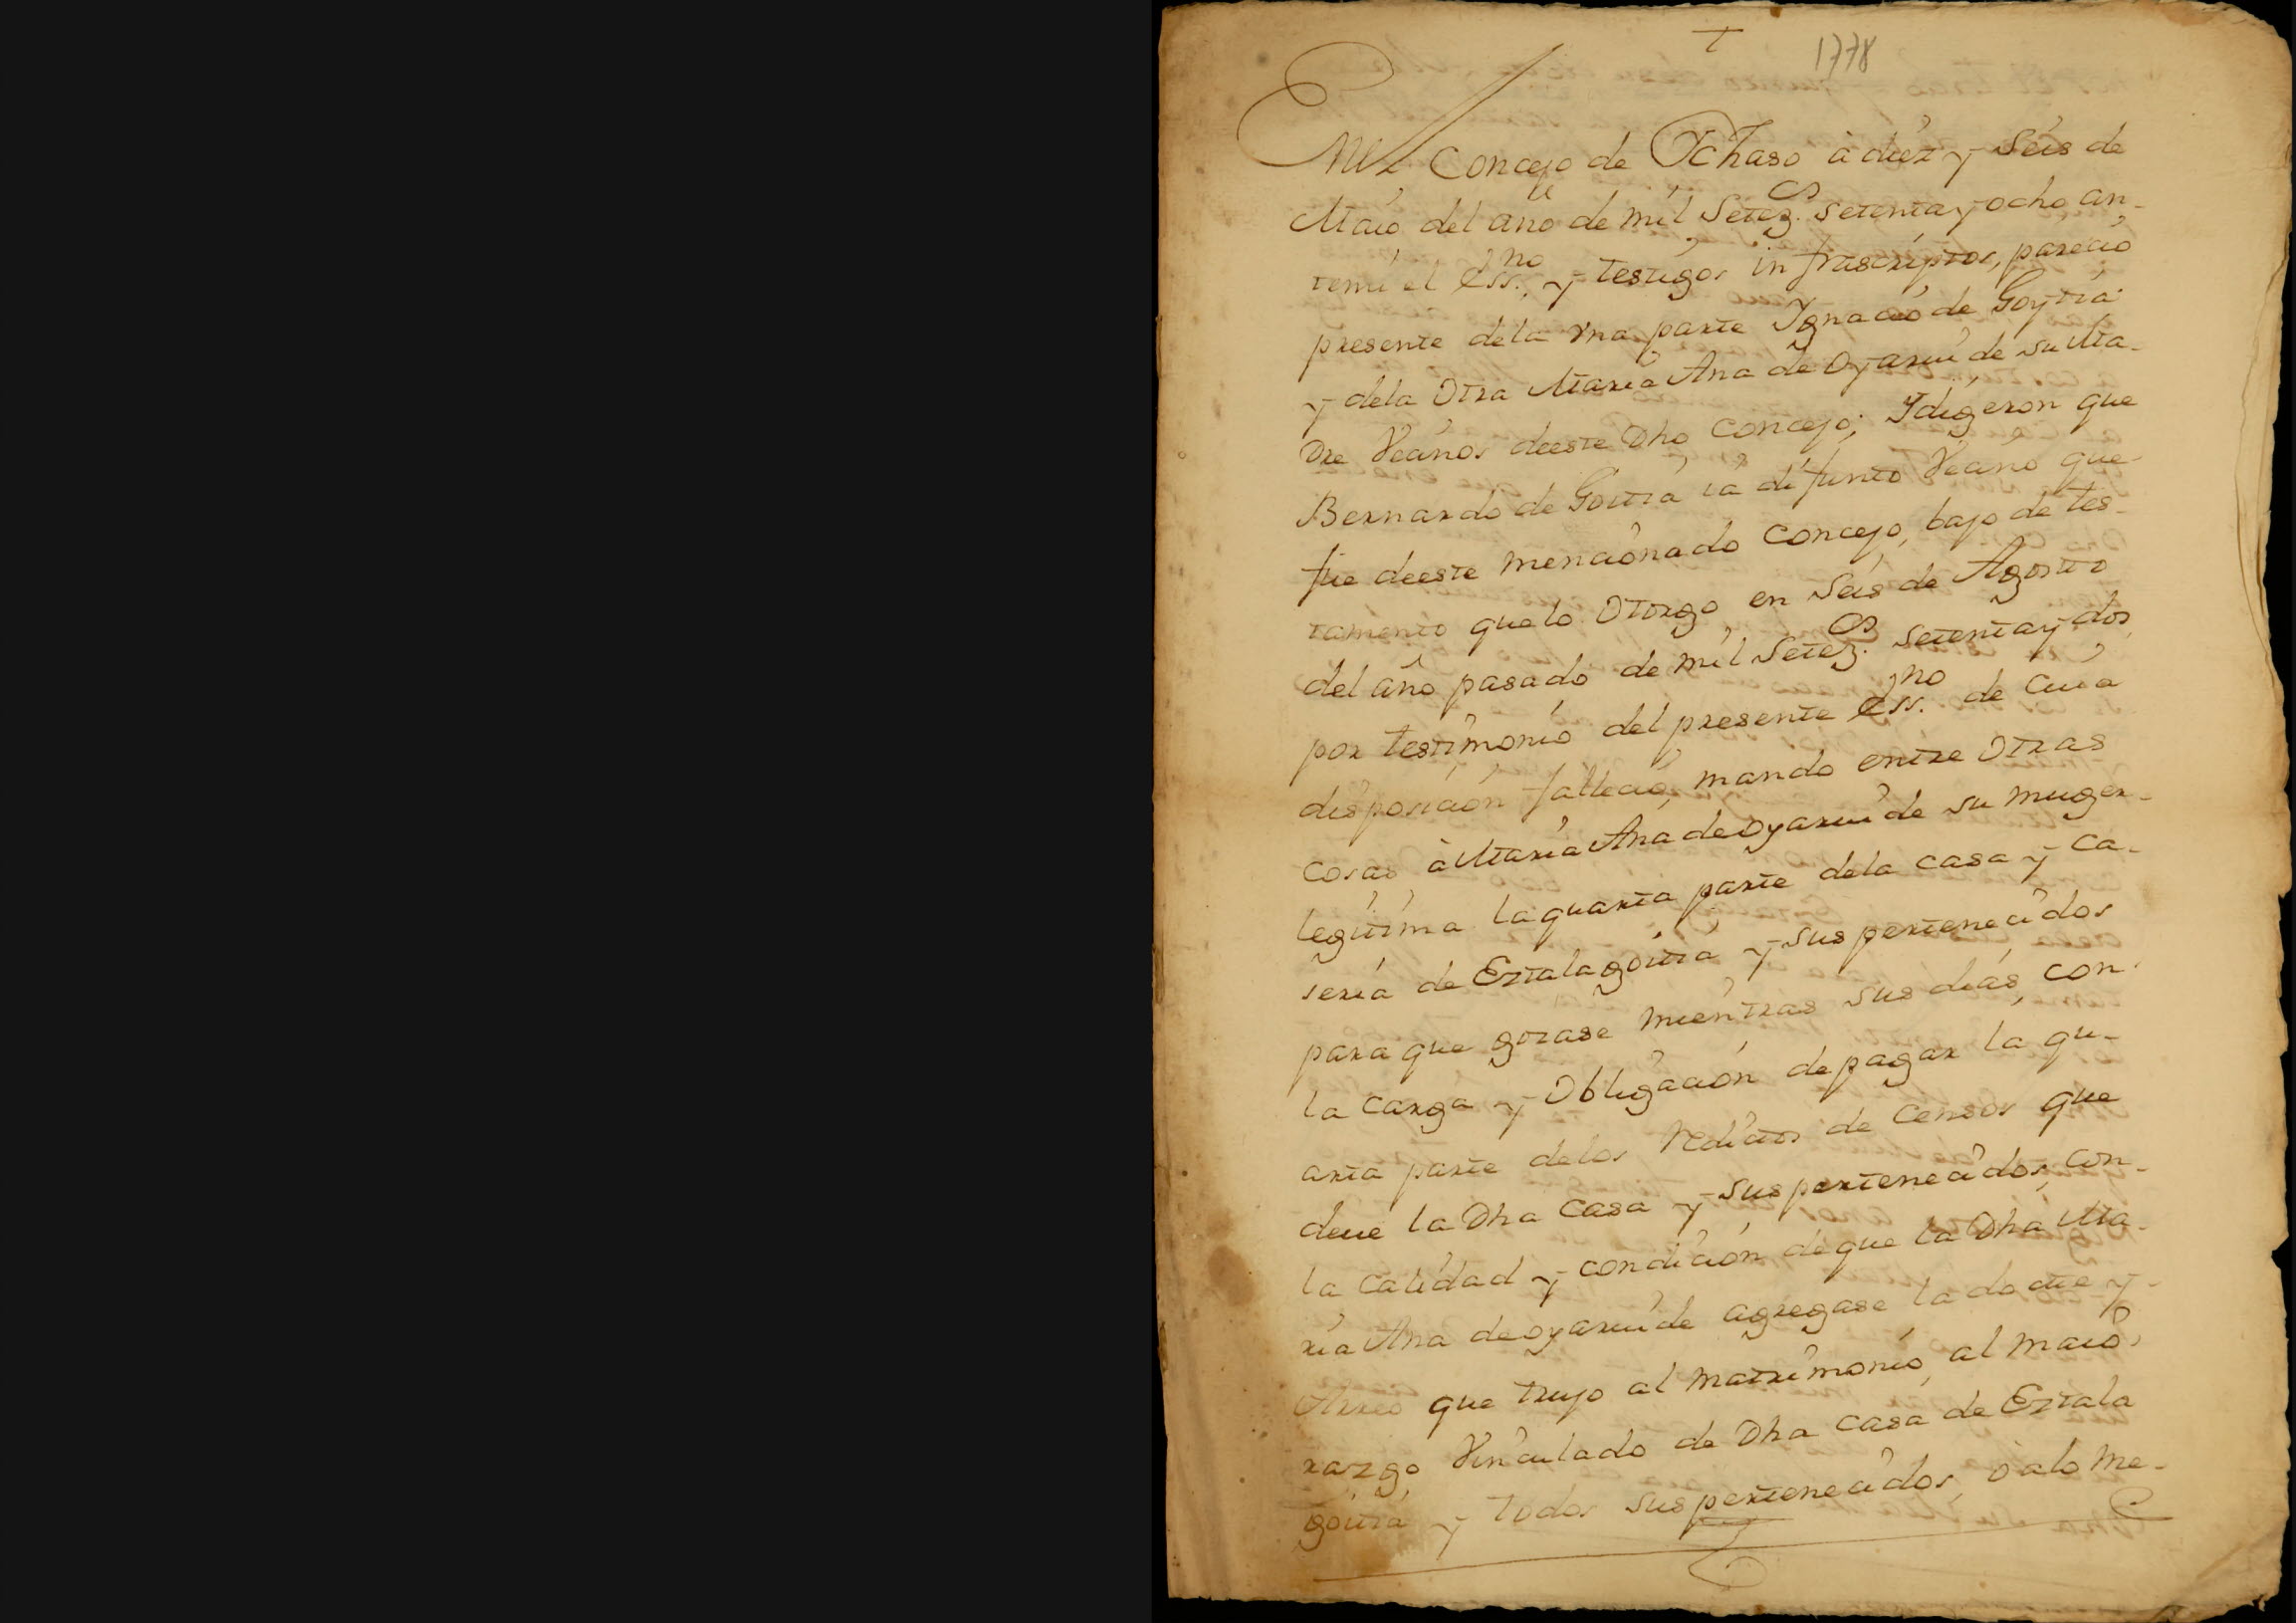 +
1778
En el Concejo de Ychaso à diez y Seis de
Maio del año de mil Setez.os setenta y ocho, an-
temi el Ess.no, y testigos infrascriptos, parecio
presente dela vna parte Ygnacio de Goytia
y dela Otra Maria Ana de Oyarvide, su Ma-
dre Vecinos deeste Dho Concejo; Y digeron que
Bernardo de Goitia ia difunto Vecino que
fue deeste mencionado Concejo, bajo de tes-
tamento que lo Otorgo en Seis de Agosto
del año pasado de mil Setez.os setenta y dos
por testimonio del presente Ess.no de cuia
disposicion fallecio, mando entre Otras
cosas à Maria Ana de oyarvide su muger
legitima la quarta parte dela casa y ca-
seria de Eztalagoitia y sus pertenecidos
para que gozase mientras sus dias, con
la carga y Obligacion de pagar la qu-
arta parte delos Reditos de Censos que
deve la Dha Casa y sus pertenecidos, con
la calidad y condicion de que la Dha Ma-
ria Ana de oyarvide agregase la dote y
Arreo que trujo al matrimonio, al maio-
razgo Vinculado de Dha casa de Eztala
goitia y todos sus pertenecidos, ò alo me-